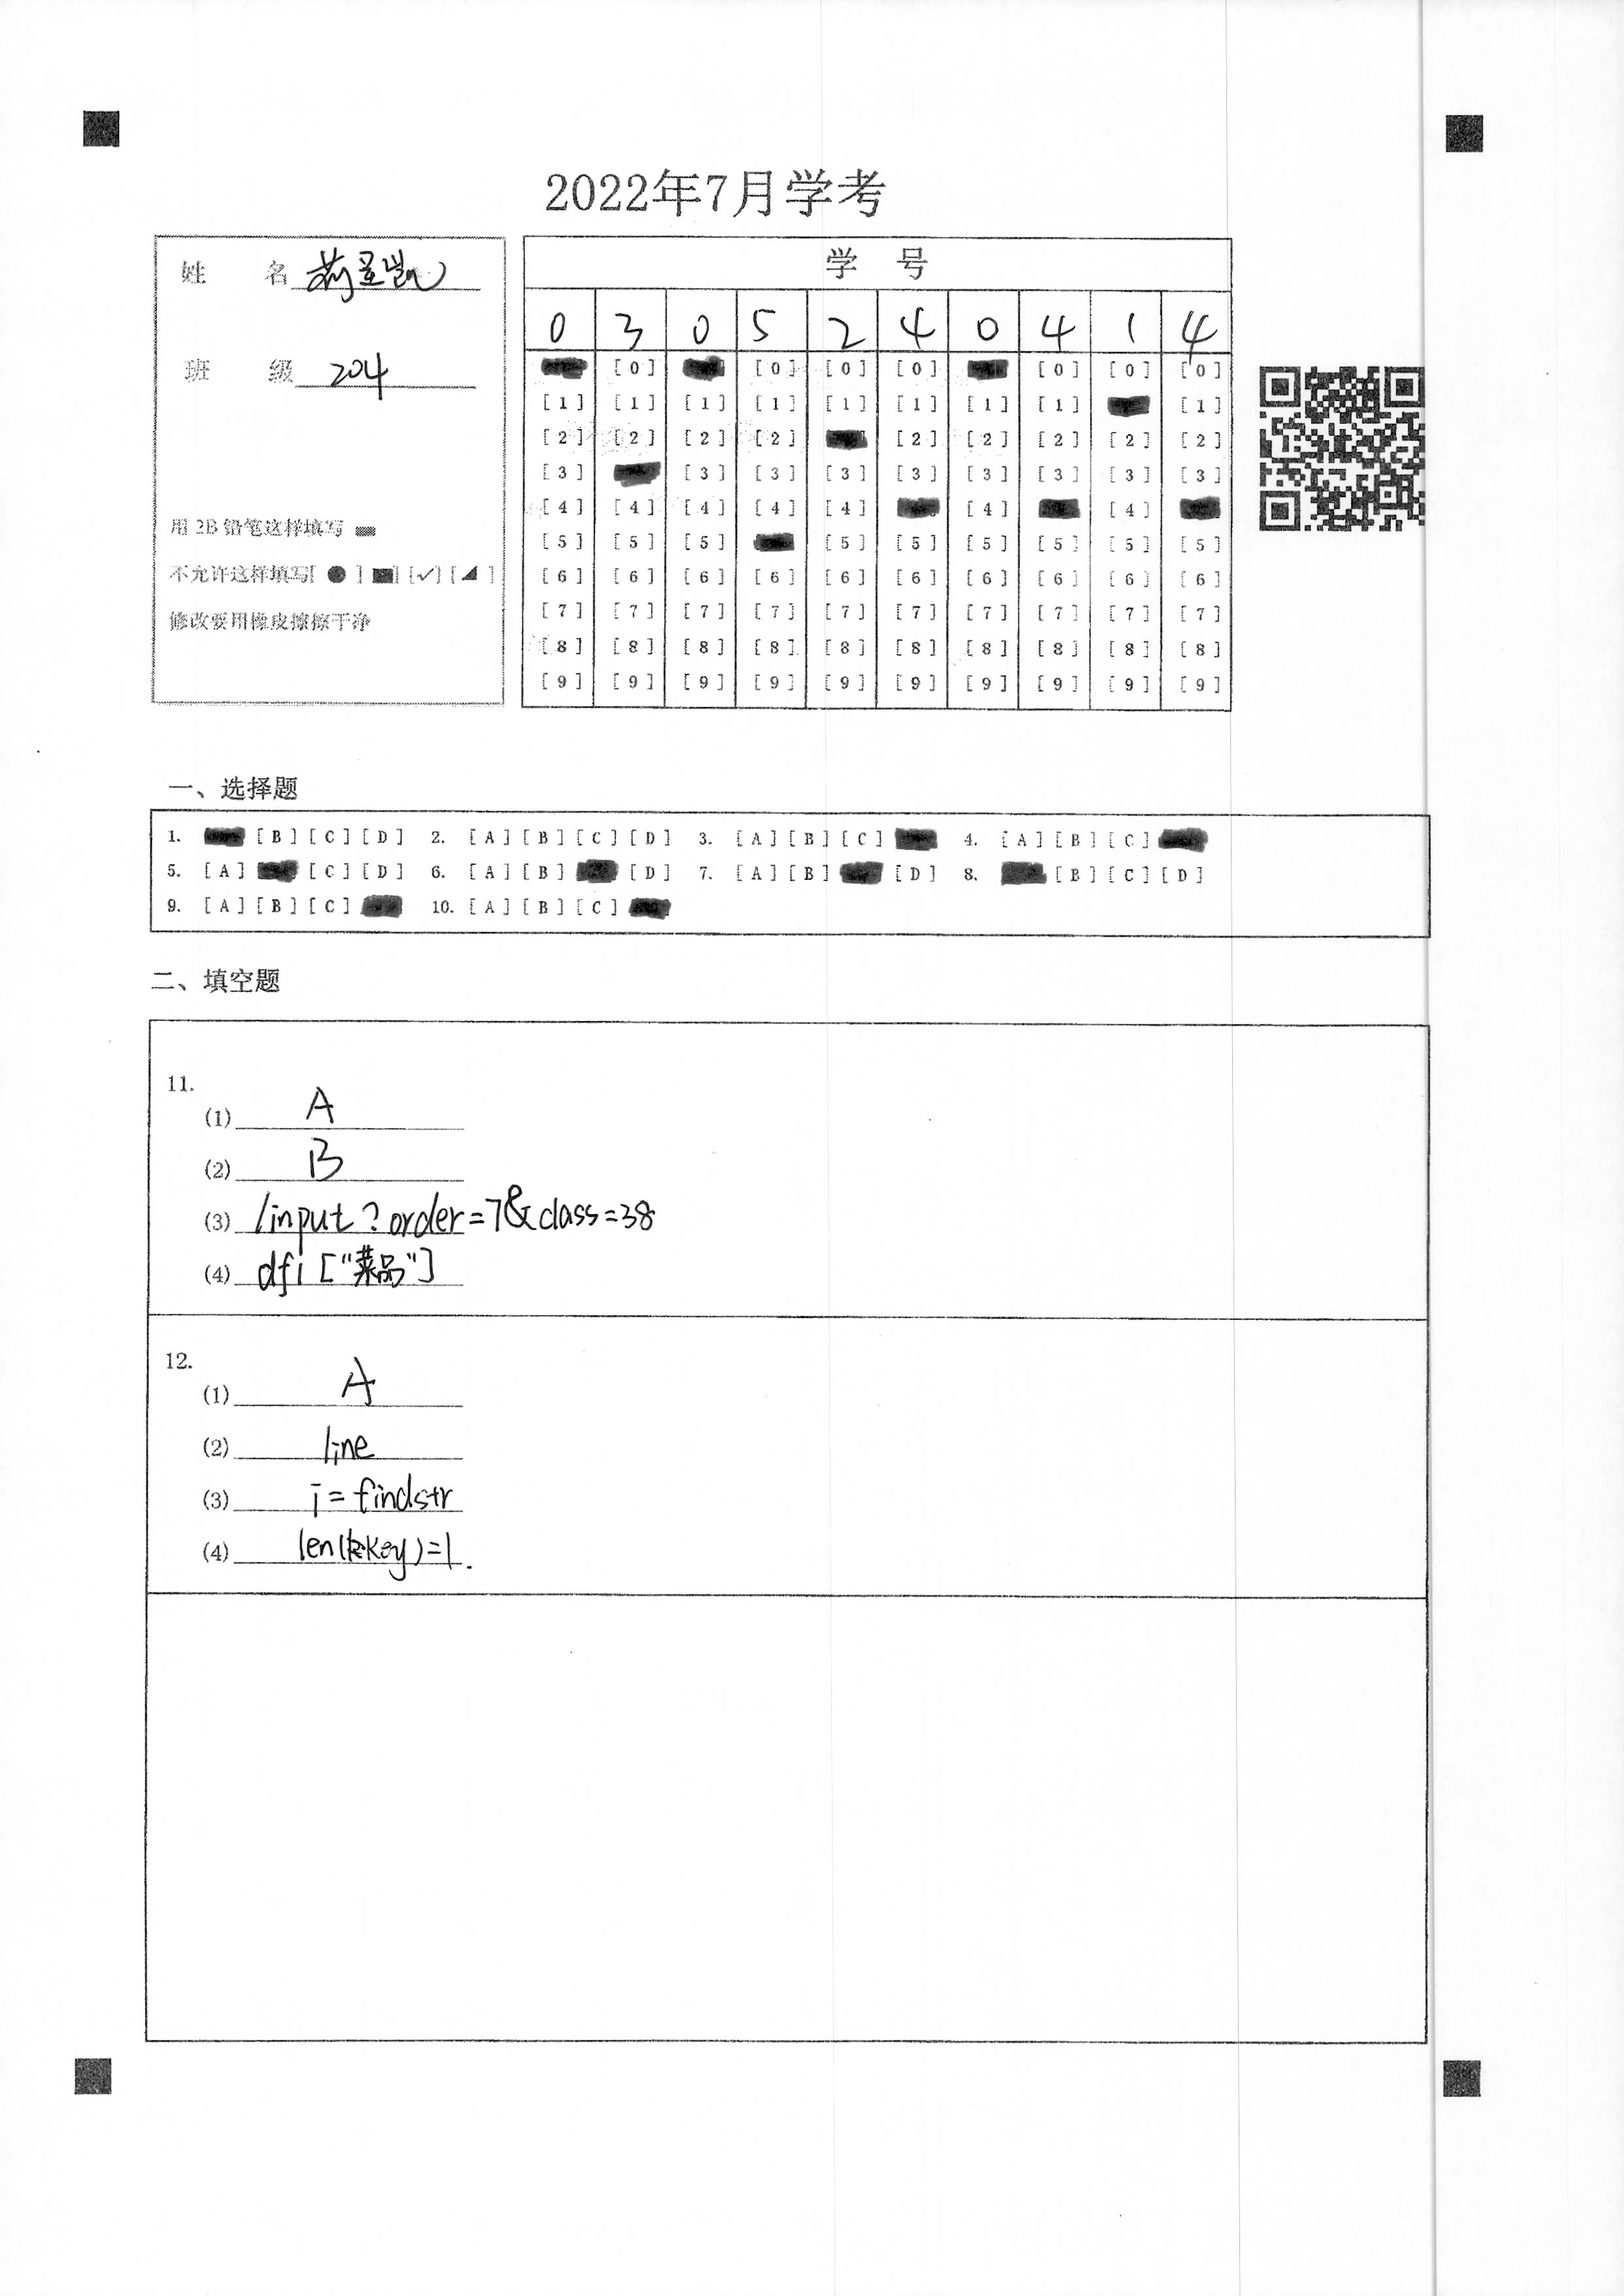 2022年7月学考
姓 名
班 级 204
用2B铅笔这样填写
不允许这样填写[ ● ] [■] [✓] [◢ ]
修改要用橡皮擦擦干净
学 号
0 3 0 5 2 4 0 4 1 4
[0] [0] [0] [0] [0] [0] [0]
[1] [1] [1] [1] [1] [1] [1] [1] [1]
[2] [2] [2] [2] [2] [2] [2] [2] [2]
[3] [3] [3] [3] [3] [3] [3] [3] [3]
[4] [4] [4] [4] [4] [4] [4]
[5] [5] [5] [5] [5] [5] [5] [5] [5]
[6] [6] [6] [6] [6] [6] [6] [6] [6] [6]
[7] [7] [7] [7] [7] [7] [7] [7] [7] [7]
[8] [8] [8] [8] [8] [8] [8] [8] [8] [8]
[9] [9] [9] [9] [9] [9] [9] [9] [9] [9]
一、选择题
1. [B] [C] [D] 2. [A] [B] [C] [D] 3. [A] [B] [C] 4. [A] [B] [C]
5. [A] [C] [D] 6. [A] [B] [D] 7. [A] [B] [D] 8. [B] [C] [D]
9. [A] [B] [C] 10. [A] [B] [C]
二、填空题
11.
(1) A
(2) B
(3) /input?order=7&class=38
(4) dfi["菜品"]
12.
(1) A
(2) line
(3) i=findstr
(4) len(key)=1.